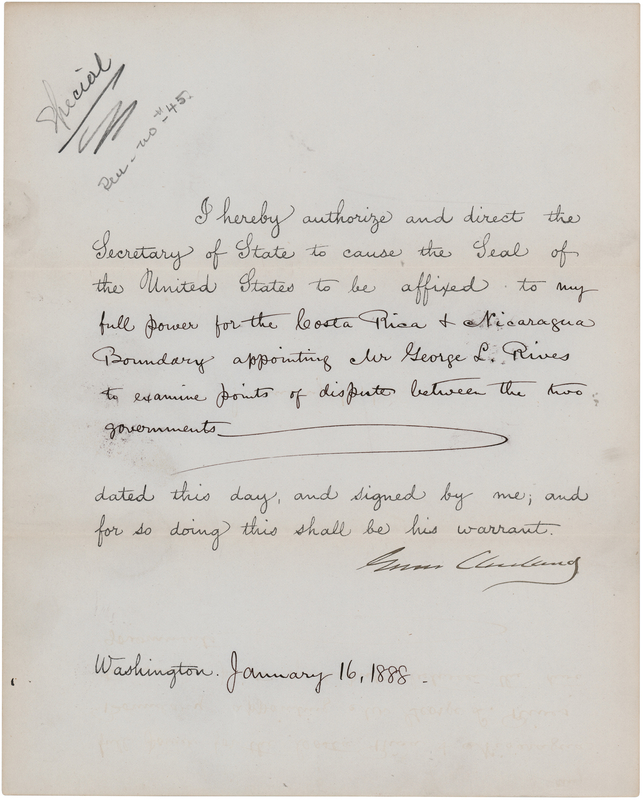 Special
no - 45.
I hereby authorize and direct the
Secretary of State to cause the Seal of
the United States to be affixed to my
full power for the Costa Rica & Nicaragua
Boundary appointing Mr George L. Rives
to examine points of dispute between the two
governments
dated this day, and signed by me; and
for so doing this shall be his warrant.
Grover Cleveland
Washington. January 16, 1888.